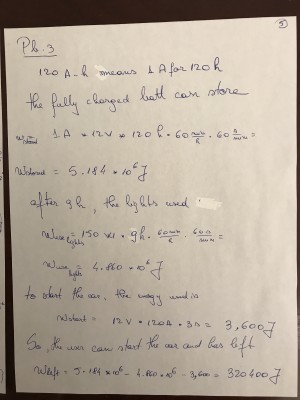 5
Pb. 3
120 A-h means 1A for 120 h
the fully charged batt can store
Wstored 1A * 12V * 120 h * 60 min/h * 60 s/min =
Wstored = 5.184 * 10⁶ J
after 9h, the lights used
Wuse lights = 150 W * 9h * 60 min/h * 60 s/min =
Wuse lights = 4.860 * 10⁶ J
to start the car, the energy used is
Wstart = 12V * 120A * 3s = 3,600 J
So, the user can start the car and has left
Wleft = 5.184 * 10⁶ - 4.860 * 10⁶ - 3,600 = 320400 J